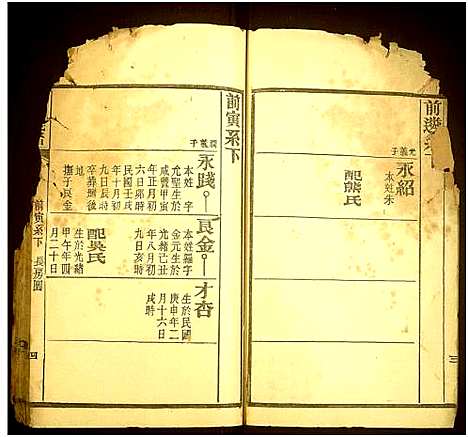 前
系下
元義子
永紹
本姓朱
配熊氏
三
前寅系下
義子
永踐
本姓 字
允聖生於
咸豐甲寅
年正月初
六日卯時
民國壬戌
年十月初
卒葬
撫子良金
良金
本姓羅字
金元生於
光緒己丑
年八月初
九日亥時
配吳氏
生於光緒
甲午年四
月二十日
才杏
生於民國
庚申年二
月十六日
戌時
前寅系下
長房
四